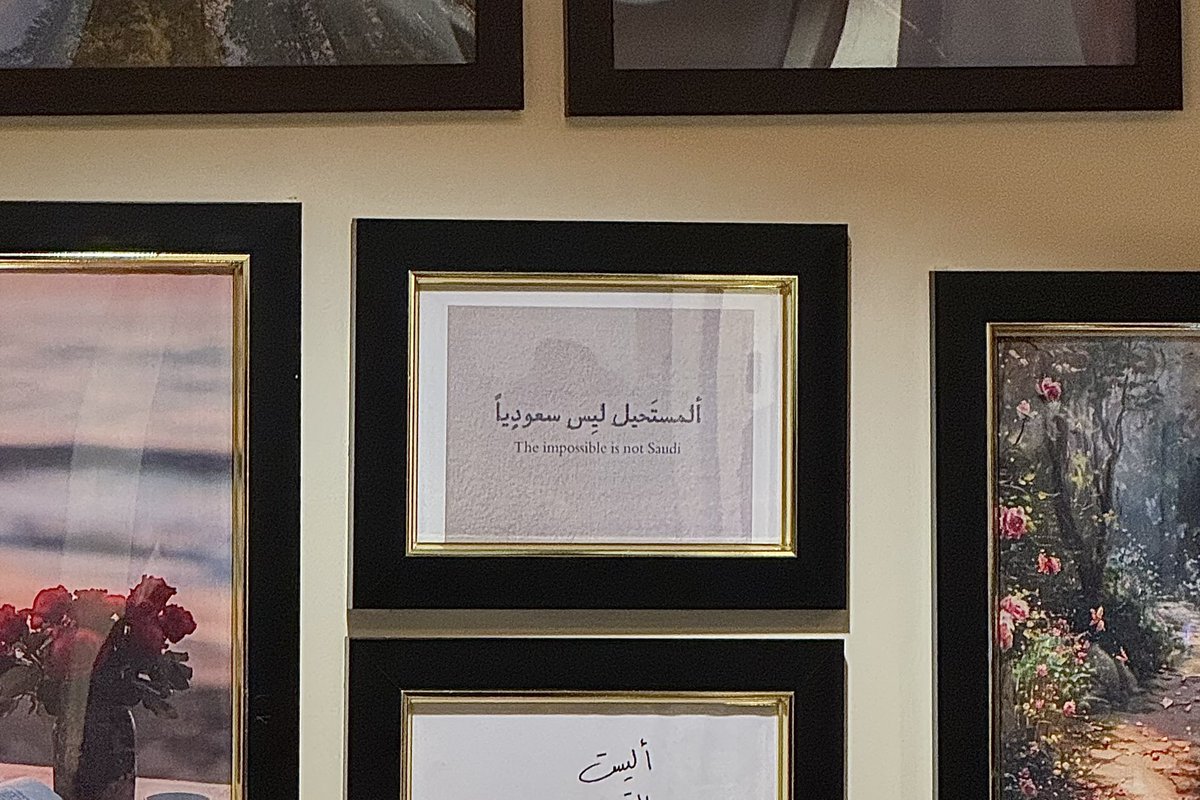 ألمستَحيل ليِس سعودِياً
The impossible is not Saudi
أليست